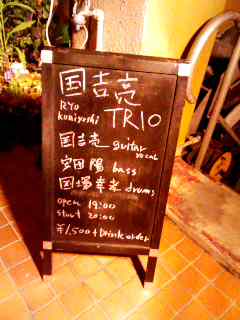 国吉亮
RYO
Kuniyoshi TRIO
国吉亮 guitar
vocal
安田陽 bass
国場幸孝 drums
open 19:00
start 20:00
¥1,500+Drink order